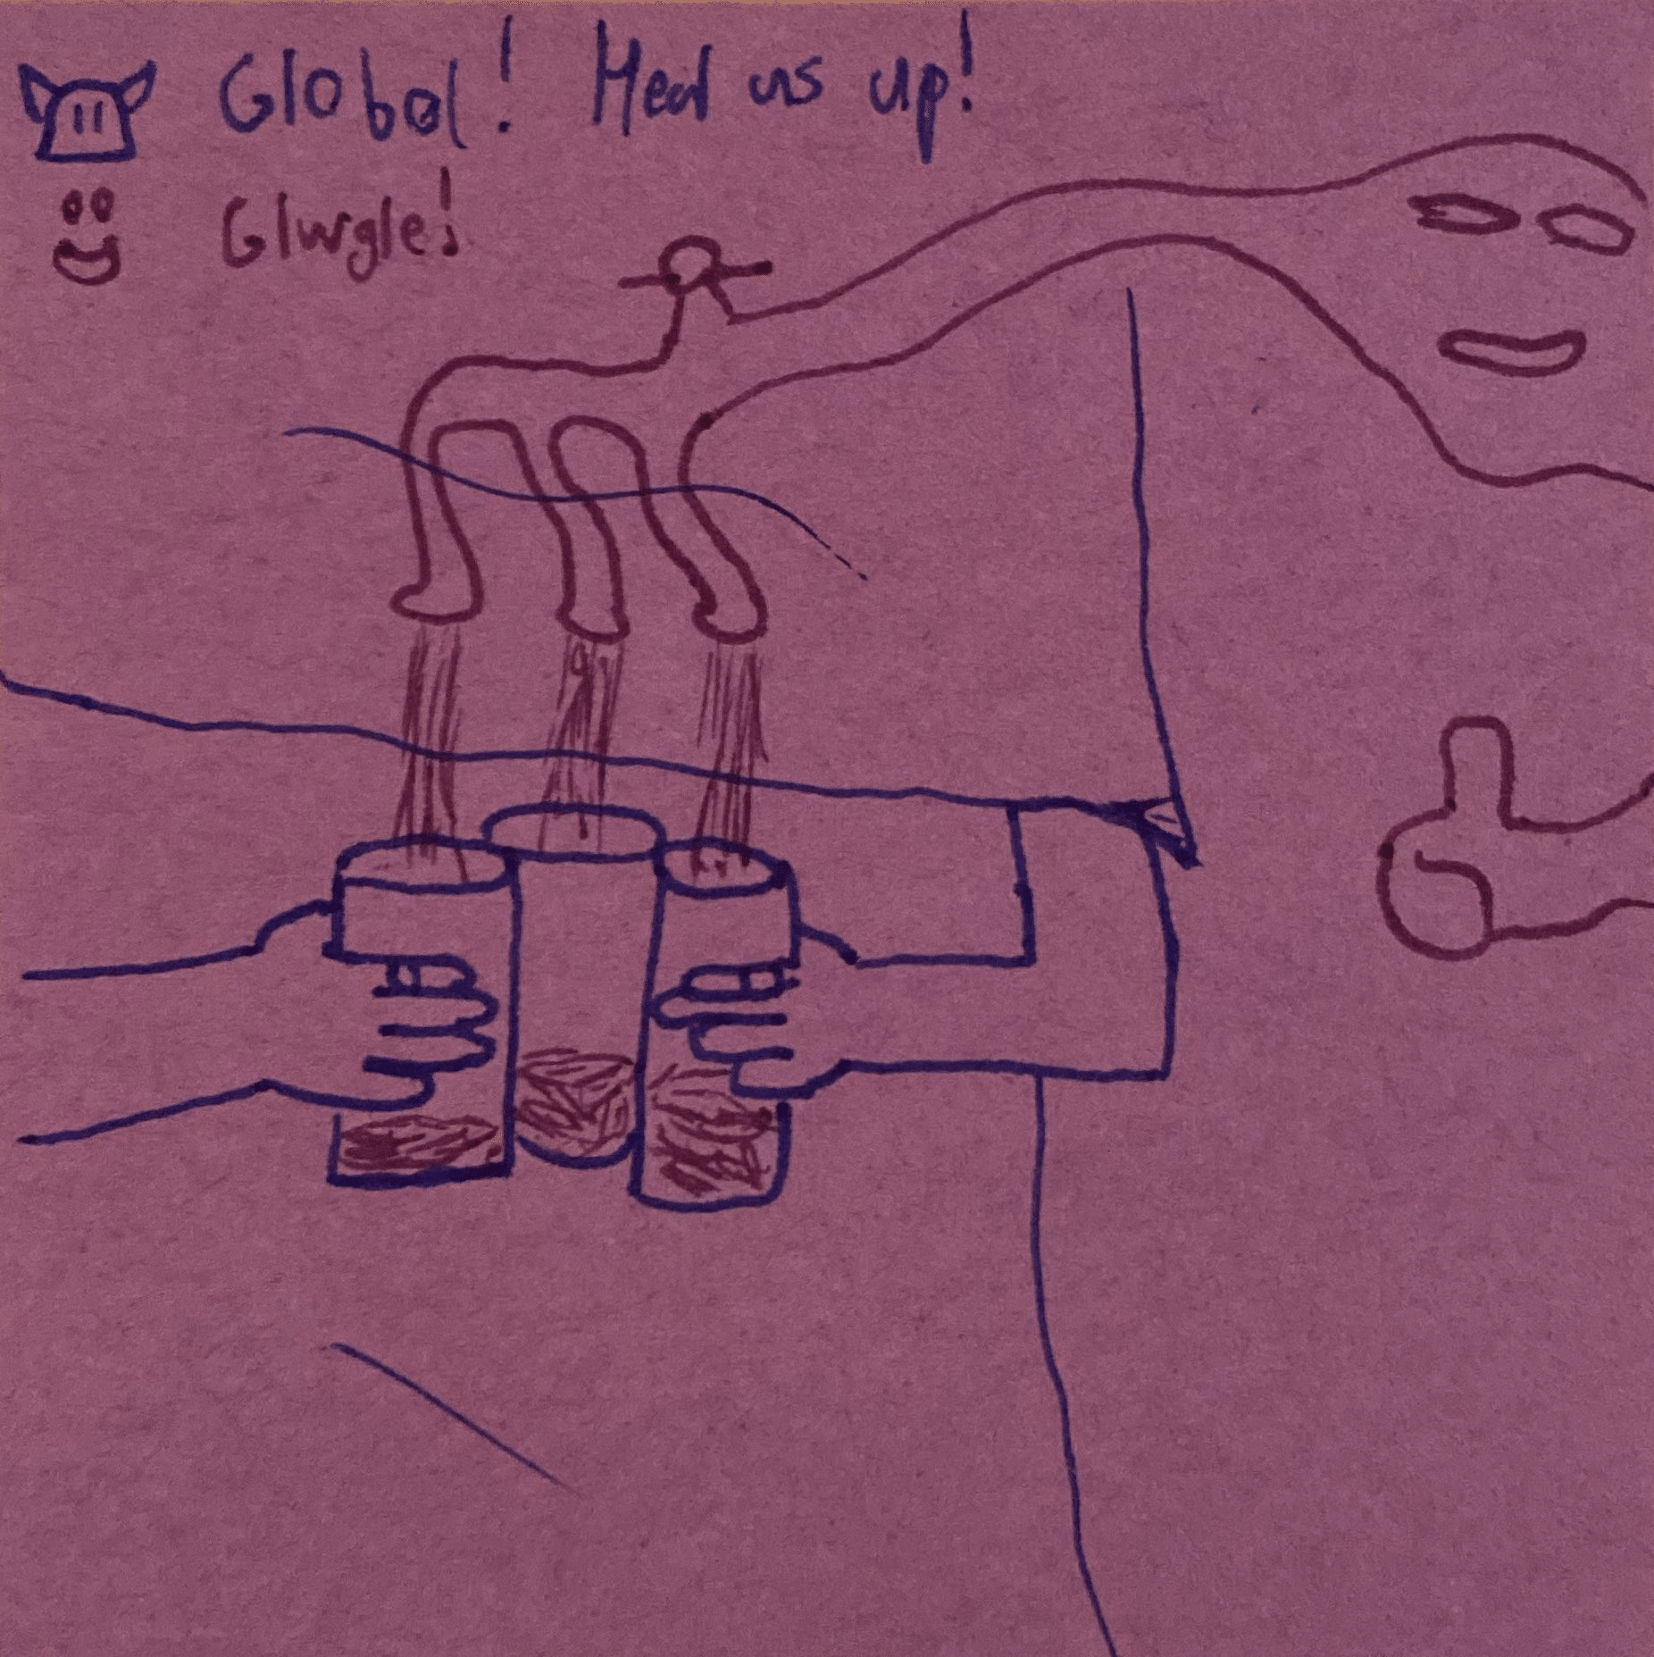 Global! Heal us up!
Glurgle!